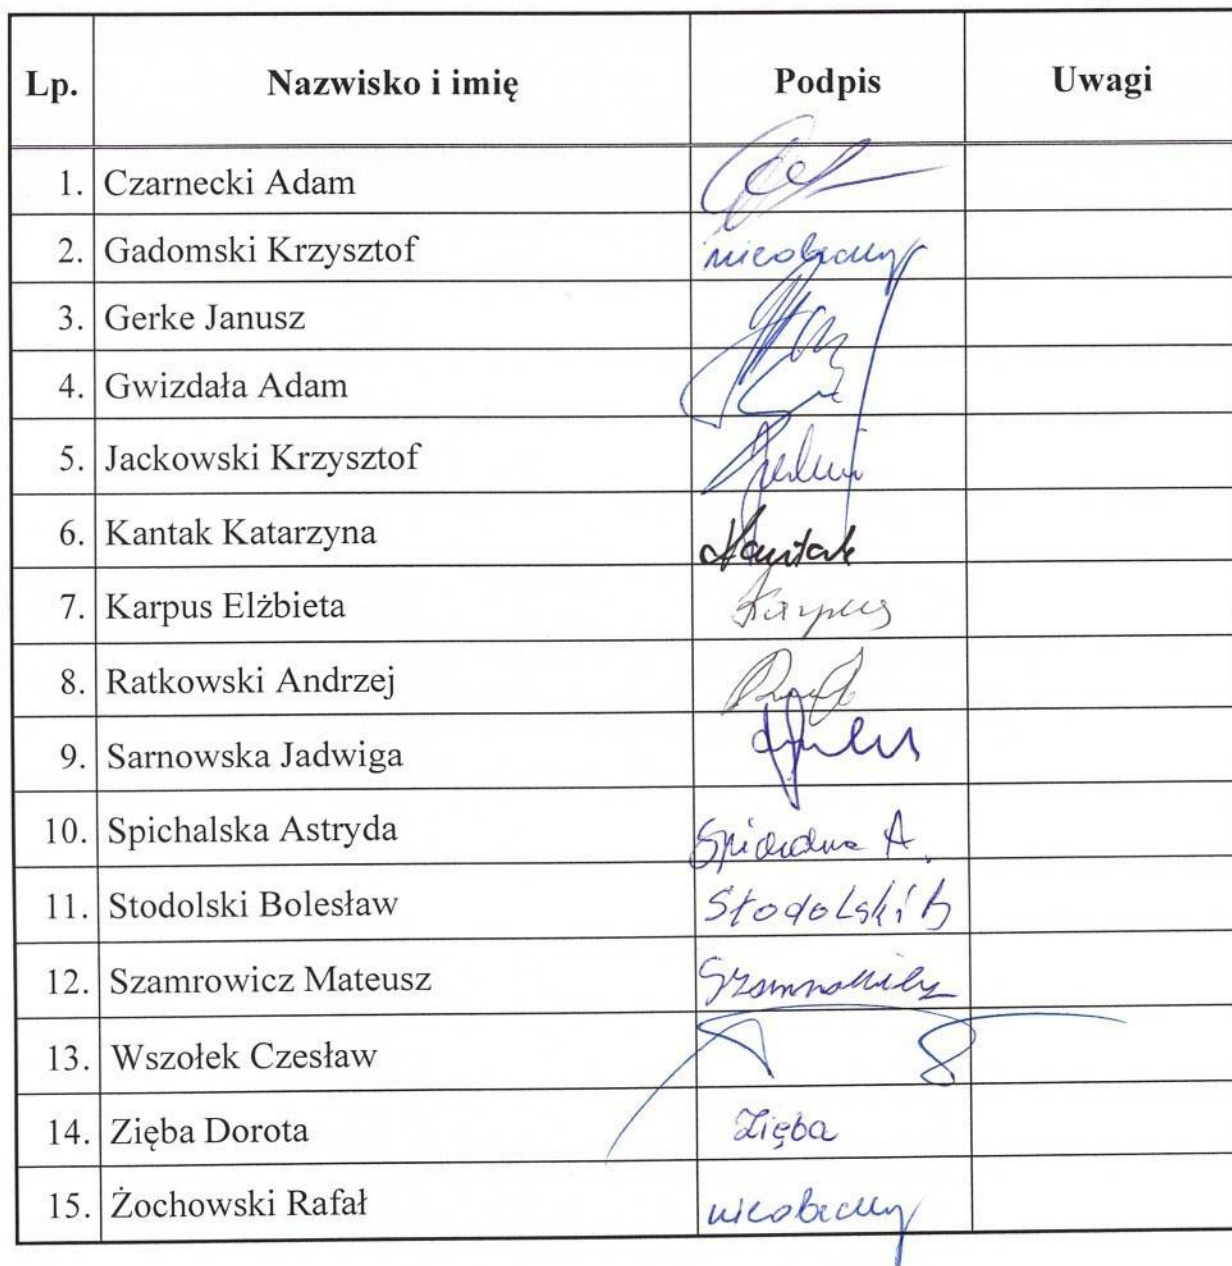 Lp. Nazwisko i imię Podpis Uwagi
1. Czarnecki Adam
2. Gadomski Krzysztof nieobecny
3. Gerke Janusz
4. Gwizdała Adam
5. Jackowski Krzysztof
6. Kantak Katarzyna Kantak
7. Karpus Elżbieta Karpus
8. Ratkowski Andrzej
9. Sarnowska Jadwiga
10. Spichalska Astryda A.
11. Stodolski Bolesław Stodolski B
12. Szamrowicz Mateusz
13. Wszołek Czesław
14. Zięba Dorota Zięba
15. Żochowski Rafał nieobecny